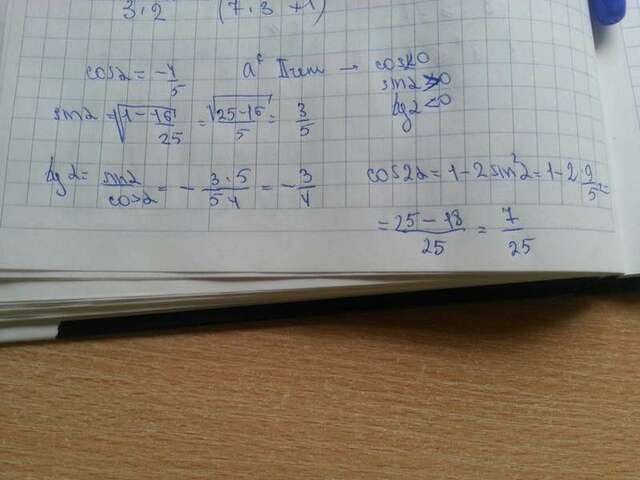 3·2 (7·3 + 1)
cosα = -4/5 α II чет → cosα<0
sinα>0
tgα<0
sinα = √(1-16/25) = √(25-16)/5 = 3/5
tgα = sinα/cosα = - 3·5/5·4 = -3/4
cos2α = 1-2sin²α = 1-2·9/5²=
= 25-18/25 = 7/25